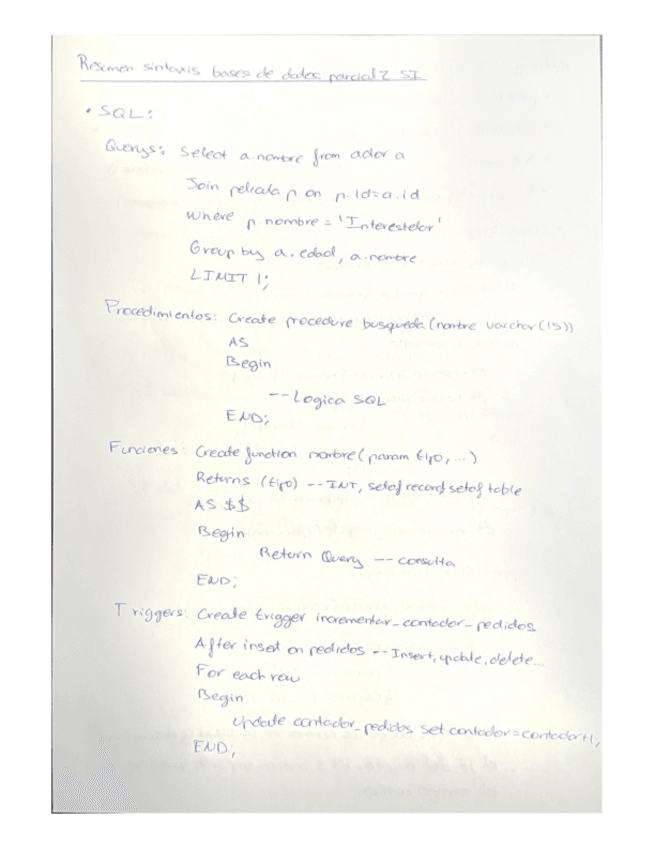 Resumen sintaxis bases de datos parcial 2 SI
• SQL:
Querys: Select a.nombre from actor a
Join pelicula p on p.id=a.id
Where p.nombre = 'Interestelar'
Group by a.edad, a.nombre
LIMIT 1;
Procedimientos: Create procedure busqueda(nombre varchar(15))
AS
Begin
--Logica SQL
END;
Funciones: Create function nombre(param tipo, ...)
Returns (tipo) -- INT, setof record, setof table
AS $$
Begin
Return Query -- consulta
END;
Triggers: Create trigger incrementar_contador_pedidos
After inset on pedidos -- Insert, update, delete...
For each row
Begin
update contador_pedidos set contador=contador+1;
END;